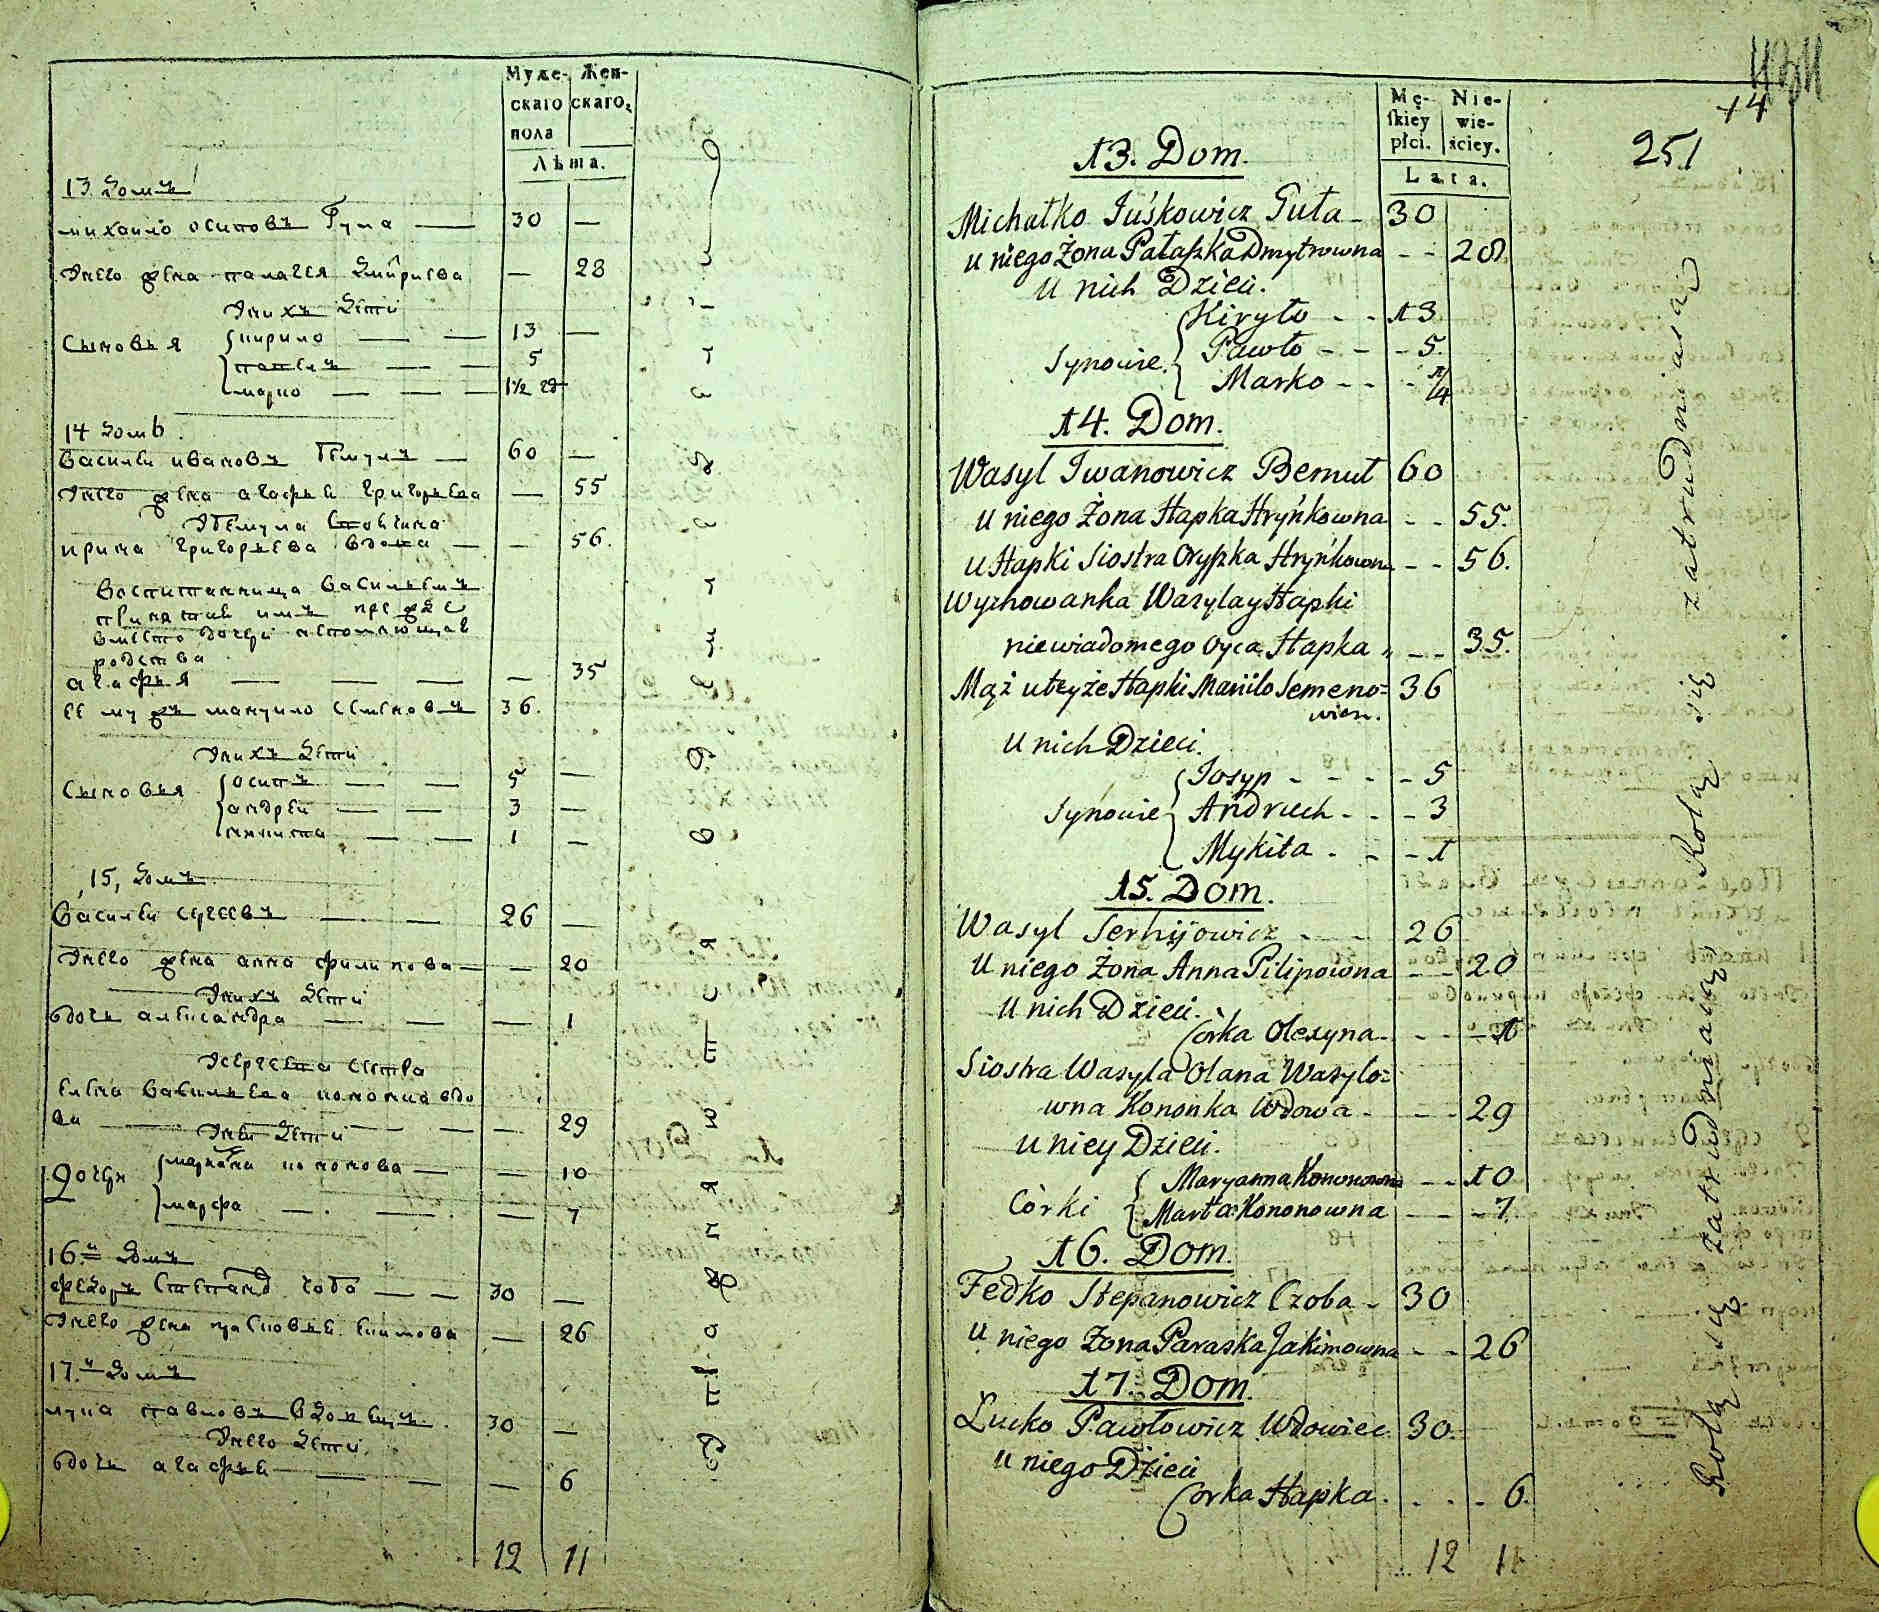 Муже-
скаго
пола
Жен-
скаго.
Лѣта.
13 домъ
михаило осиповъ Гула — 30 —
Унего жена палагея дмитриева — 28
Унихъ дети
Сыновья кирило — — 13 —
павелъ — — 5
марко — — — 1½ —
14 домъ
василеи ивановъ Бемулъ — 60 —
Унего жена агафья григорьева — 55
ирина григорьева вдова — — 56.
воспитанница васильемъ
вместо дочери
родства
агафья — — — — 35
ее мужъ мануило семеновъ 36.
Унихъ дети
Сыновья осипъ — — 5 —
андреи — — 3 —
никита — — 1 —
15, домъ
василеи сергеевъ — — 26 —
Унего жена анна филипова — — 20
Унихъ дети
дочь александра — — — 1
Усергеева сестра
елена васильева конониха вдо
ва — — — — 29
Унеи дети
Дочери марияна кононова — — 10
марфа — — — 7
16.й домъ
федоръ степановъ чоба — — 30 —
Унего жена прасковья екимова — 26
17.й домъ
лука павловъ вдовецъ 30 —
Унего дети
дочь агафья — — — 6
12 11
Mę-
skiey
płci.
Nie-
wie-
sciey.
Lata.
14
251
13. Dom.
Michałko Juśkowicz Guła - 30
u niego Żona Pałaszka Dmytrowna - - 28
u nich Dzieci.
Kiryło - - 13
Synowie. Pawło - - - 5.
Marko - - - 1/4
14. Dom.
Wasyl Iwanowicz Bemut 60
u niego Żona Hapka Hryńkowna - - 55.
u Hapki Siostra Oryszka Hryńkowna - - 56.
Wychowanka Wasyla y Hapki
niewiadomego Oyca Hapka - - 35.
Mąż uteyże Hapki Maniło Semeno= 36
wicz.
U nich Dzieci.
Josyp - - - - 5
Synowie Andruch - - - 3
Mykita - - - 1
15. Dom.
Wasyl Serhijowicz - - 26
U niego Żona Anna Pilipowna - - 20
U nich Dzieci.
Córka Olexyna - - - 1
Siostra Wasyla Olana Wasylo=
wna Kononka Wdowa - - - 29
u niey Dzieci.
Maryanna Kononowna - - 10
Córki Marta Kononowna - - - 7.
16. Dom.
Fedko Stepanowicz Czoba - 30
u niego Żona Paraska Jakimowna - - 26
17. Dom.
Łucko Pawłowicz Wdowiec 30.
u niego Dzieci
Corka Hapka - . . - 6.
12 11
Rolą się zatrudniaią Rolą się zatrudniaią